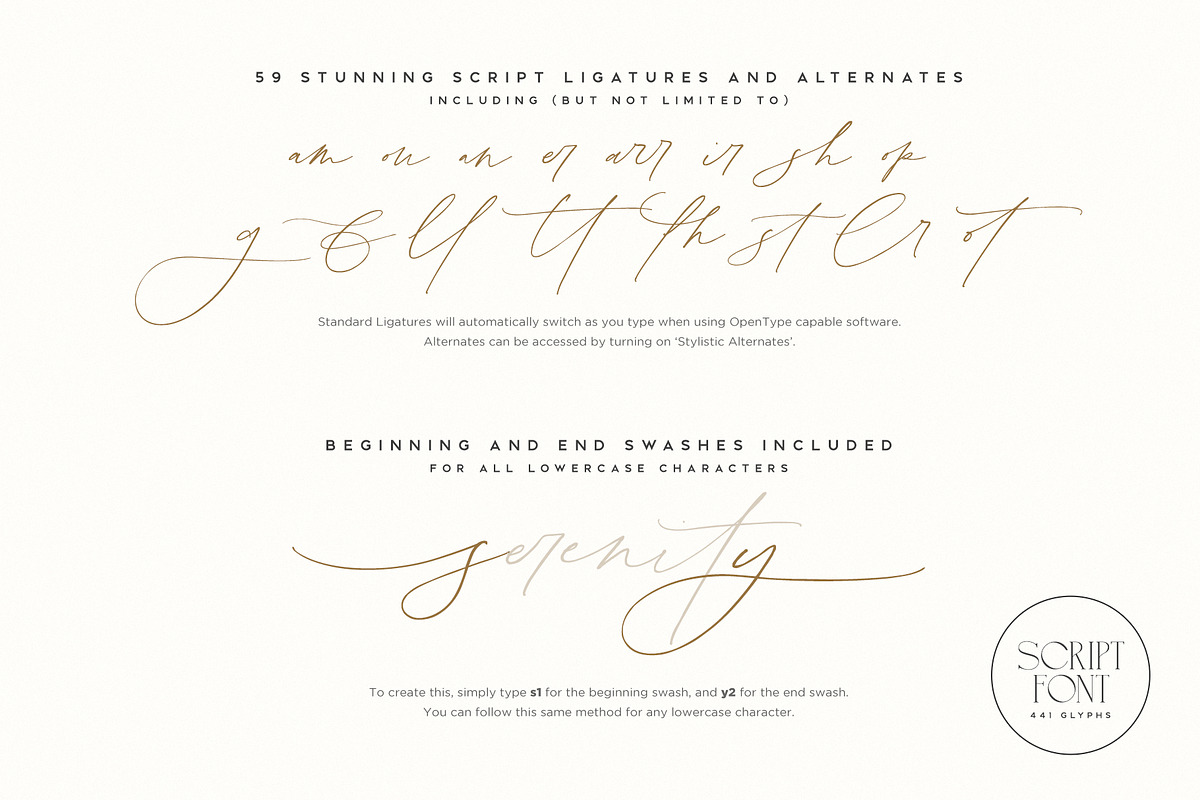 59 STUNNING SCRIPT LIGATURES AND ALTERNATES
INCLUDING (BUT NOT LIMITED TO)
am on an er arr ir sh op
g & ll tt th st er ot
Standard Ligatures will automatically switch as you type when using OpenType capable software.
Alternates can be accessed by turning on ‘Stylistic Alternates’.
BEGINNING AND END SWASHES INCLUDED
FOR ALL LOWERCASE CHARACTERS
serenity
To create this, simply type s1 for the beginning swash, and y2 for the end swash.
You can follow this same method for any lowercase character.
SCRIPT
FONT
441 GLYPHS